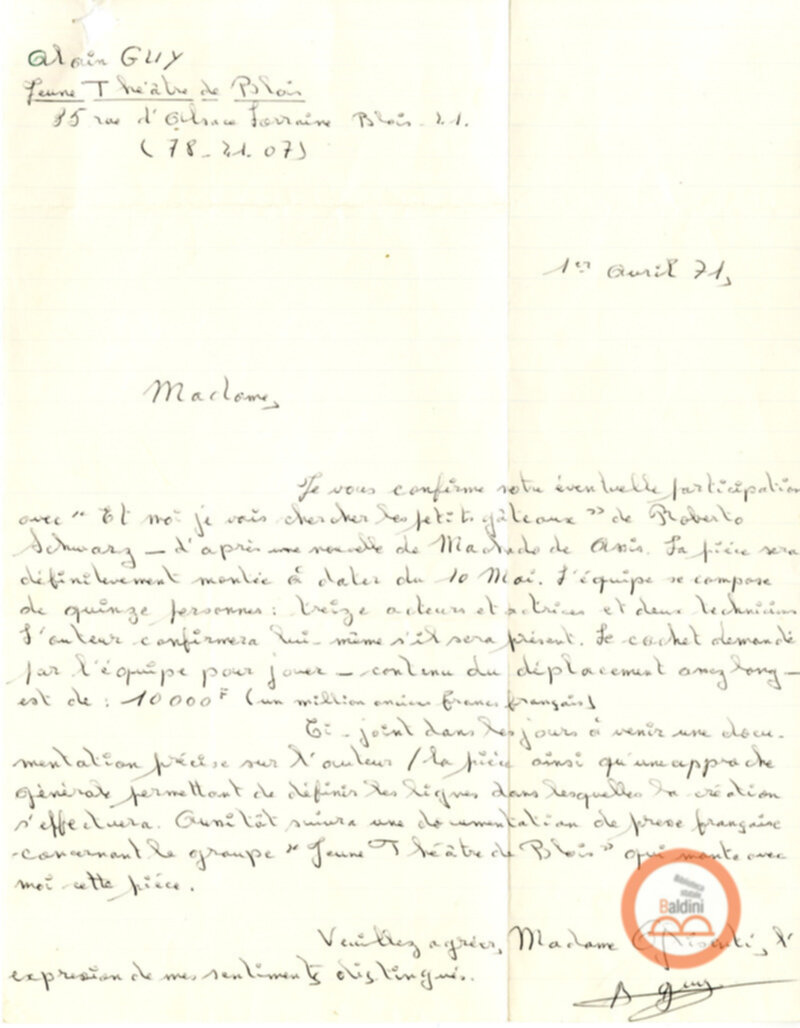 Alain GUY
Jeune Théâtre de Blois
85 rue d'Alsace Lorraine Blois - 41.
(78-21.07)
1er avril 71,
Madame,
Je vous confirme notre éventuelle participation
avec " Et moi je vais chercher les petits gâteaux " de Roberto
Schwarz - d'après une nouvelle de Machado de Assis. La pièce sera
définitevement montée à dater du 10 Mai. L'équipe se compose
de quinze personnes : treize acteurs et actrices et deux techniciens
L'auteur confirmera lui-même s'il sera présent. Le cachet demandé
par l'équipe pour jouer - contenu du déplacement assez long -
est de : 10 000 F (un million anciens francs français)
Ci-joint dans les jours à venir une docu-
mentation précise sur l'auteur / la pièce ainsi qu'une approche
générale permettant de définir les lignes dans lesquelles la création
s'effectuera. Aussitôt suivra une documentation de presse française
concernant le groupe " Jeune Théâtre de Blois " qui monte avec
moi cette pièce.
Veuillez agréer, Madame l'
expression de mes sentiments distingués.
A Guy
Biblioteca
statale
Baldini